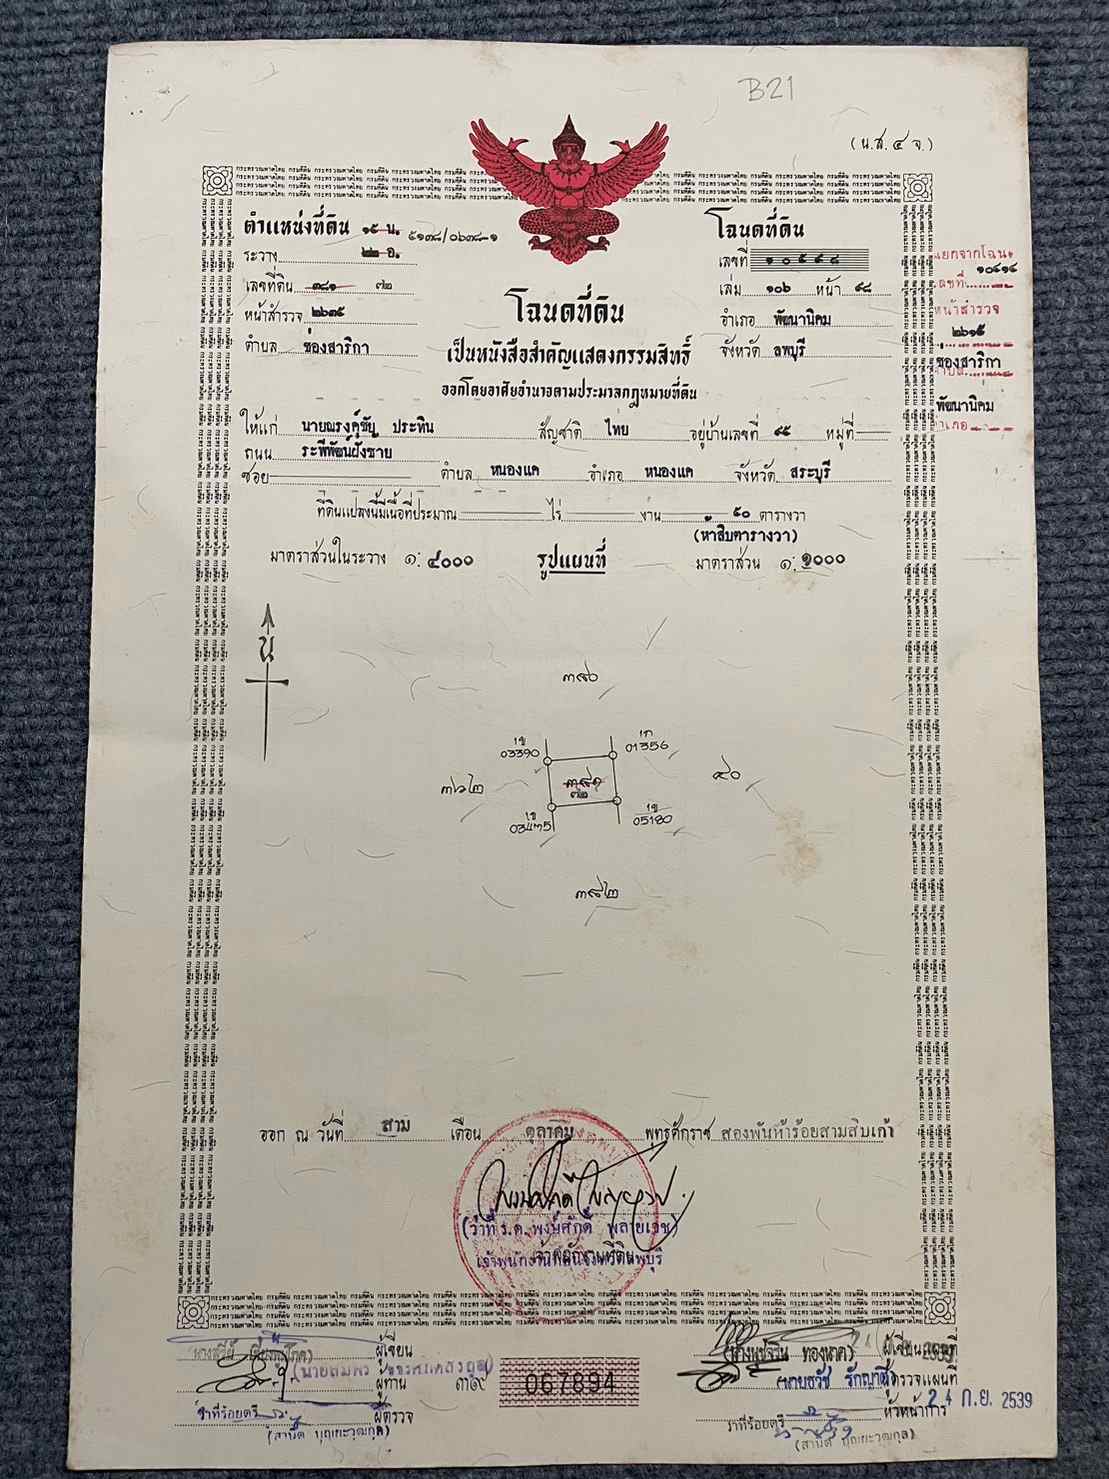 B21
(น.ส.๔ จ.)
ตำแหน่งที่ดิน ๑๕ น. ๕๑๓๘/๐๖๓๘-๑
ระวาง ๒๒ อ.
เลขที่ดิน ๓๘๑ ๗๒
หน้าสำรวจ ๒๖๓๕
ตำบล ช่องสาริกา
โฉนดที่ดิน
เลขที่ ๑๐๕๙๘
เล่ม ๑๐๖ หน้า ๙๘
อำเภอ พัฒนานิคม
จังหวัด ลพบุรี
แยกจากโฉนด
เลขที่ ๑๐๔๑๔
หน้าสำรวจ
๒๖๑๕
ช่องสาริกา
พัฒนานิคม
โฉนดที่ดิน
เป็นหนังสือสำคัญแสดงกรรมสิทธิ์
ออกโดยอาศัยอำนาจตามประมวลกฎหมายที่ดิน
ให้แก่ นายณรงค์ชัย ประทิน สัญชาติ ไทย อยู่บ้านเลขที่ ๔๕ หมู่ที่
ถนน ระพีพัฒน์ฝั่งซ้าย
ซอย ตำบล หนองแค อำเภอ หนองแค จังหวัด สระบุรี
ที่ดินแปลงนี้มีเนื้อที่ประมาณ ไร่ งาน ๕๐ ตารางวา
(ห้าสิบตารางวา)
มาตราส่วนในระวาง ๑: ๔๐๐๐ รูปแผนที่ มาตราส่วน ๑: ๑๐๐๐
น
๓๘๐
03390
01356
๓๘๑
๗๒
๓๖๒
๔๐
05180
๓๘๒
ออก ณ วันที่ สาม เดือน ตุลาคม พุทธศักราช สองพันห้าร้อยสามสิบเก้า
(ว่าที่ ร.ต. พงษ์ศักดิ์ พลายเวช)
เจ้าพนักงานที่ดินจังหวัดลพบุรี
ผู้เขียน
ผู้ทาน ๓๑๙
ว่าที่ร้อยตรี ผู้ตรวจ
(สานิต บุณยะวุฒกุล)
067894
ผู้เขียนแผนที่
นายธวัช รักญาติ ผู้ตรวจแผนที่
ว่าที่ร้อยตรี หัวหน้าการ
24 ก.ย. 2539
(สานิต บุณยะวุฒกุล)